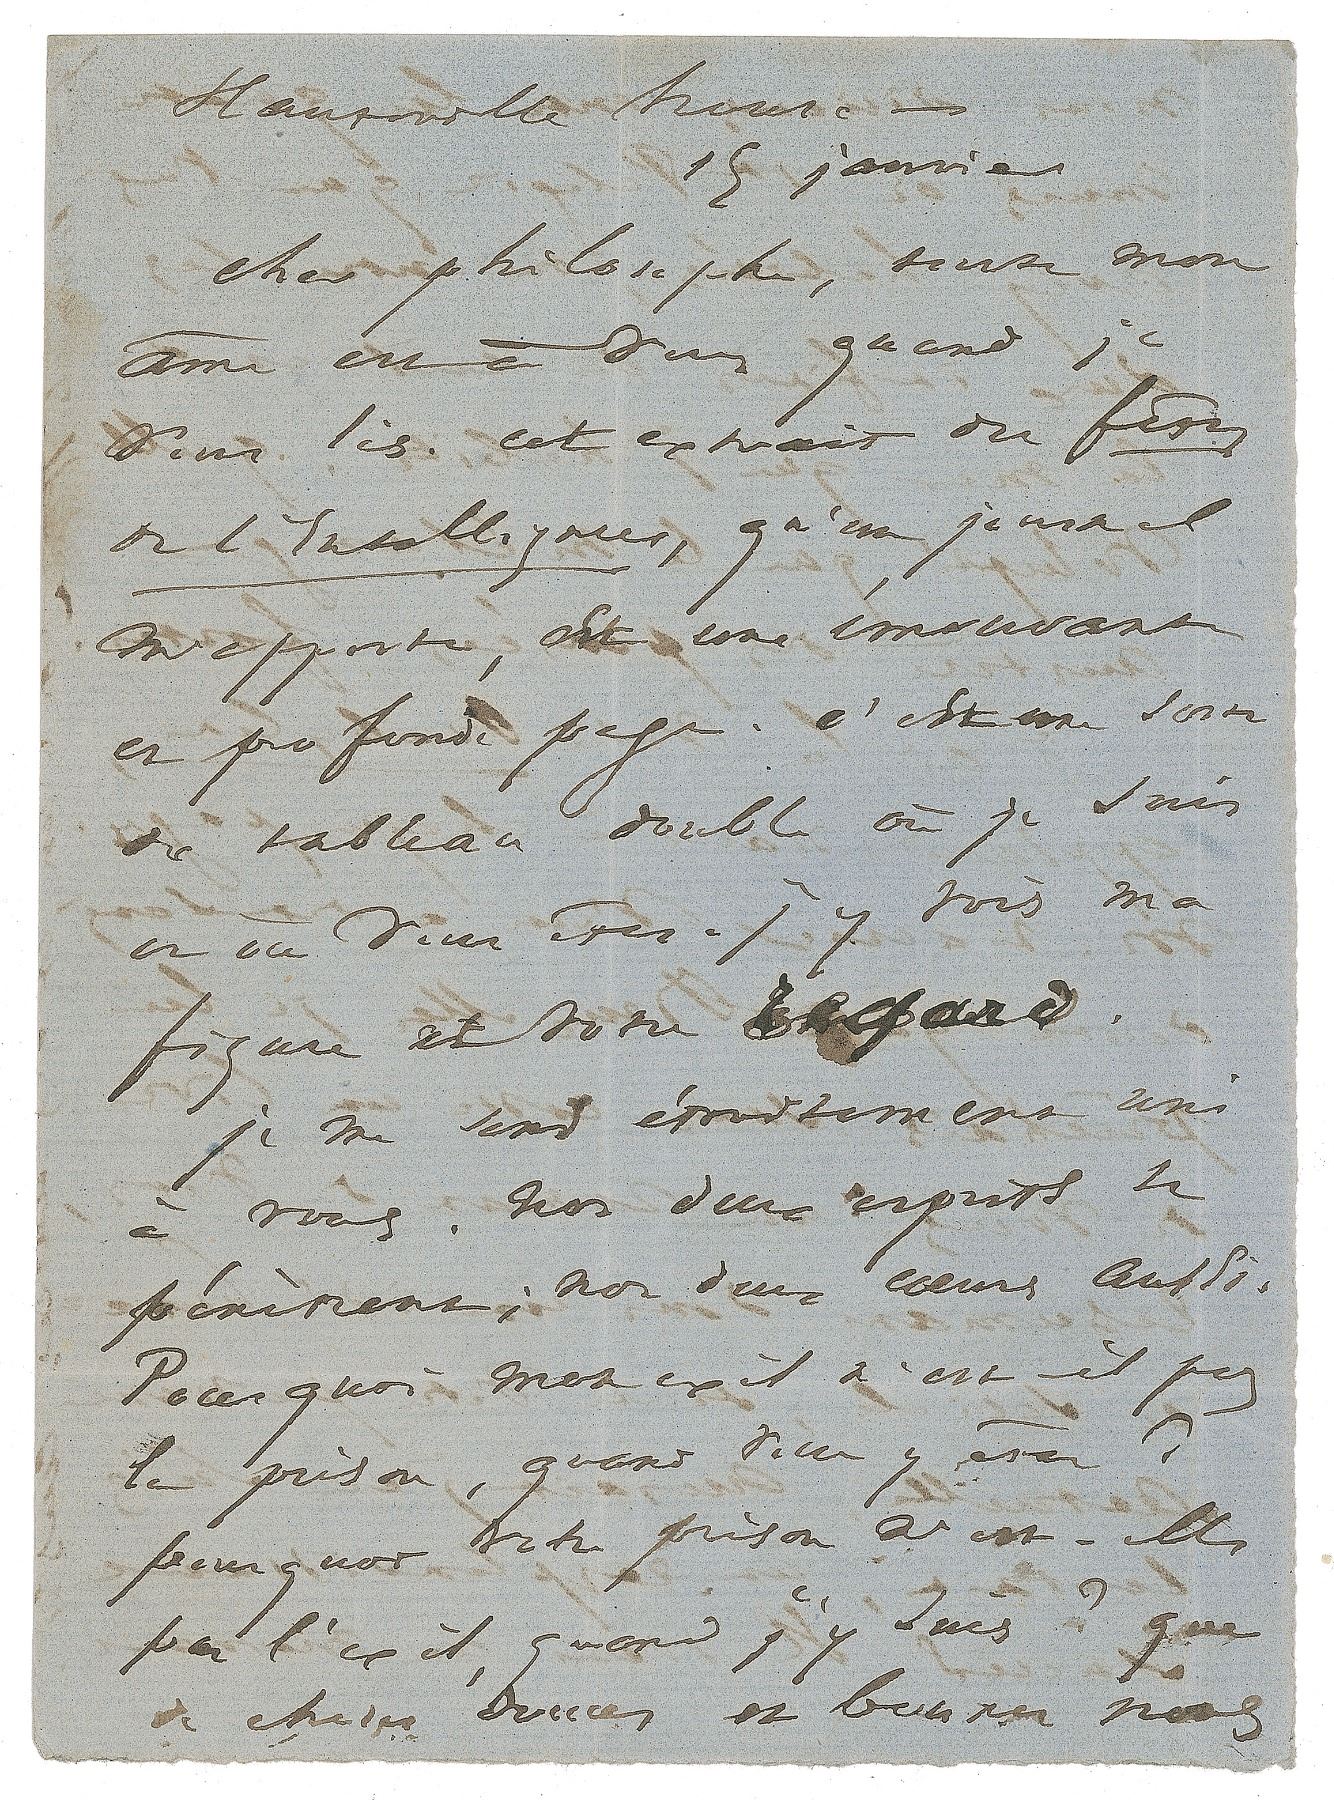 Hauteville house —
15 janvier
cher philosophe, toute mon
âme est à vous quand je
vous lis. cet extrait des fêtes
de l'Intelligence, qu'un journal
m'apporte, est une émouvante
et profonde page. c'est une sorte
de tableau double où je suis
et où vous êtes. j'y vois ma
figure et votre regard.
je me sens étroitement uni
à vous. nos deux esprits se
pénètrent ; nos deux cœurs aussi.
Pourquoi mon exil n'est-il pas
la prison, quand vous y êtes ?
pourquoi votre prison n'est-elle
pas l'exil, quand j'y suis ? que
de choses douces et bonnes nous